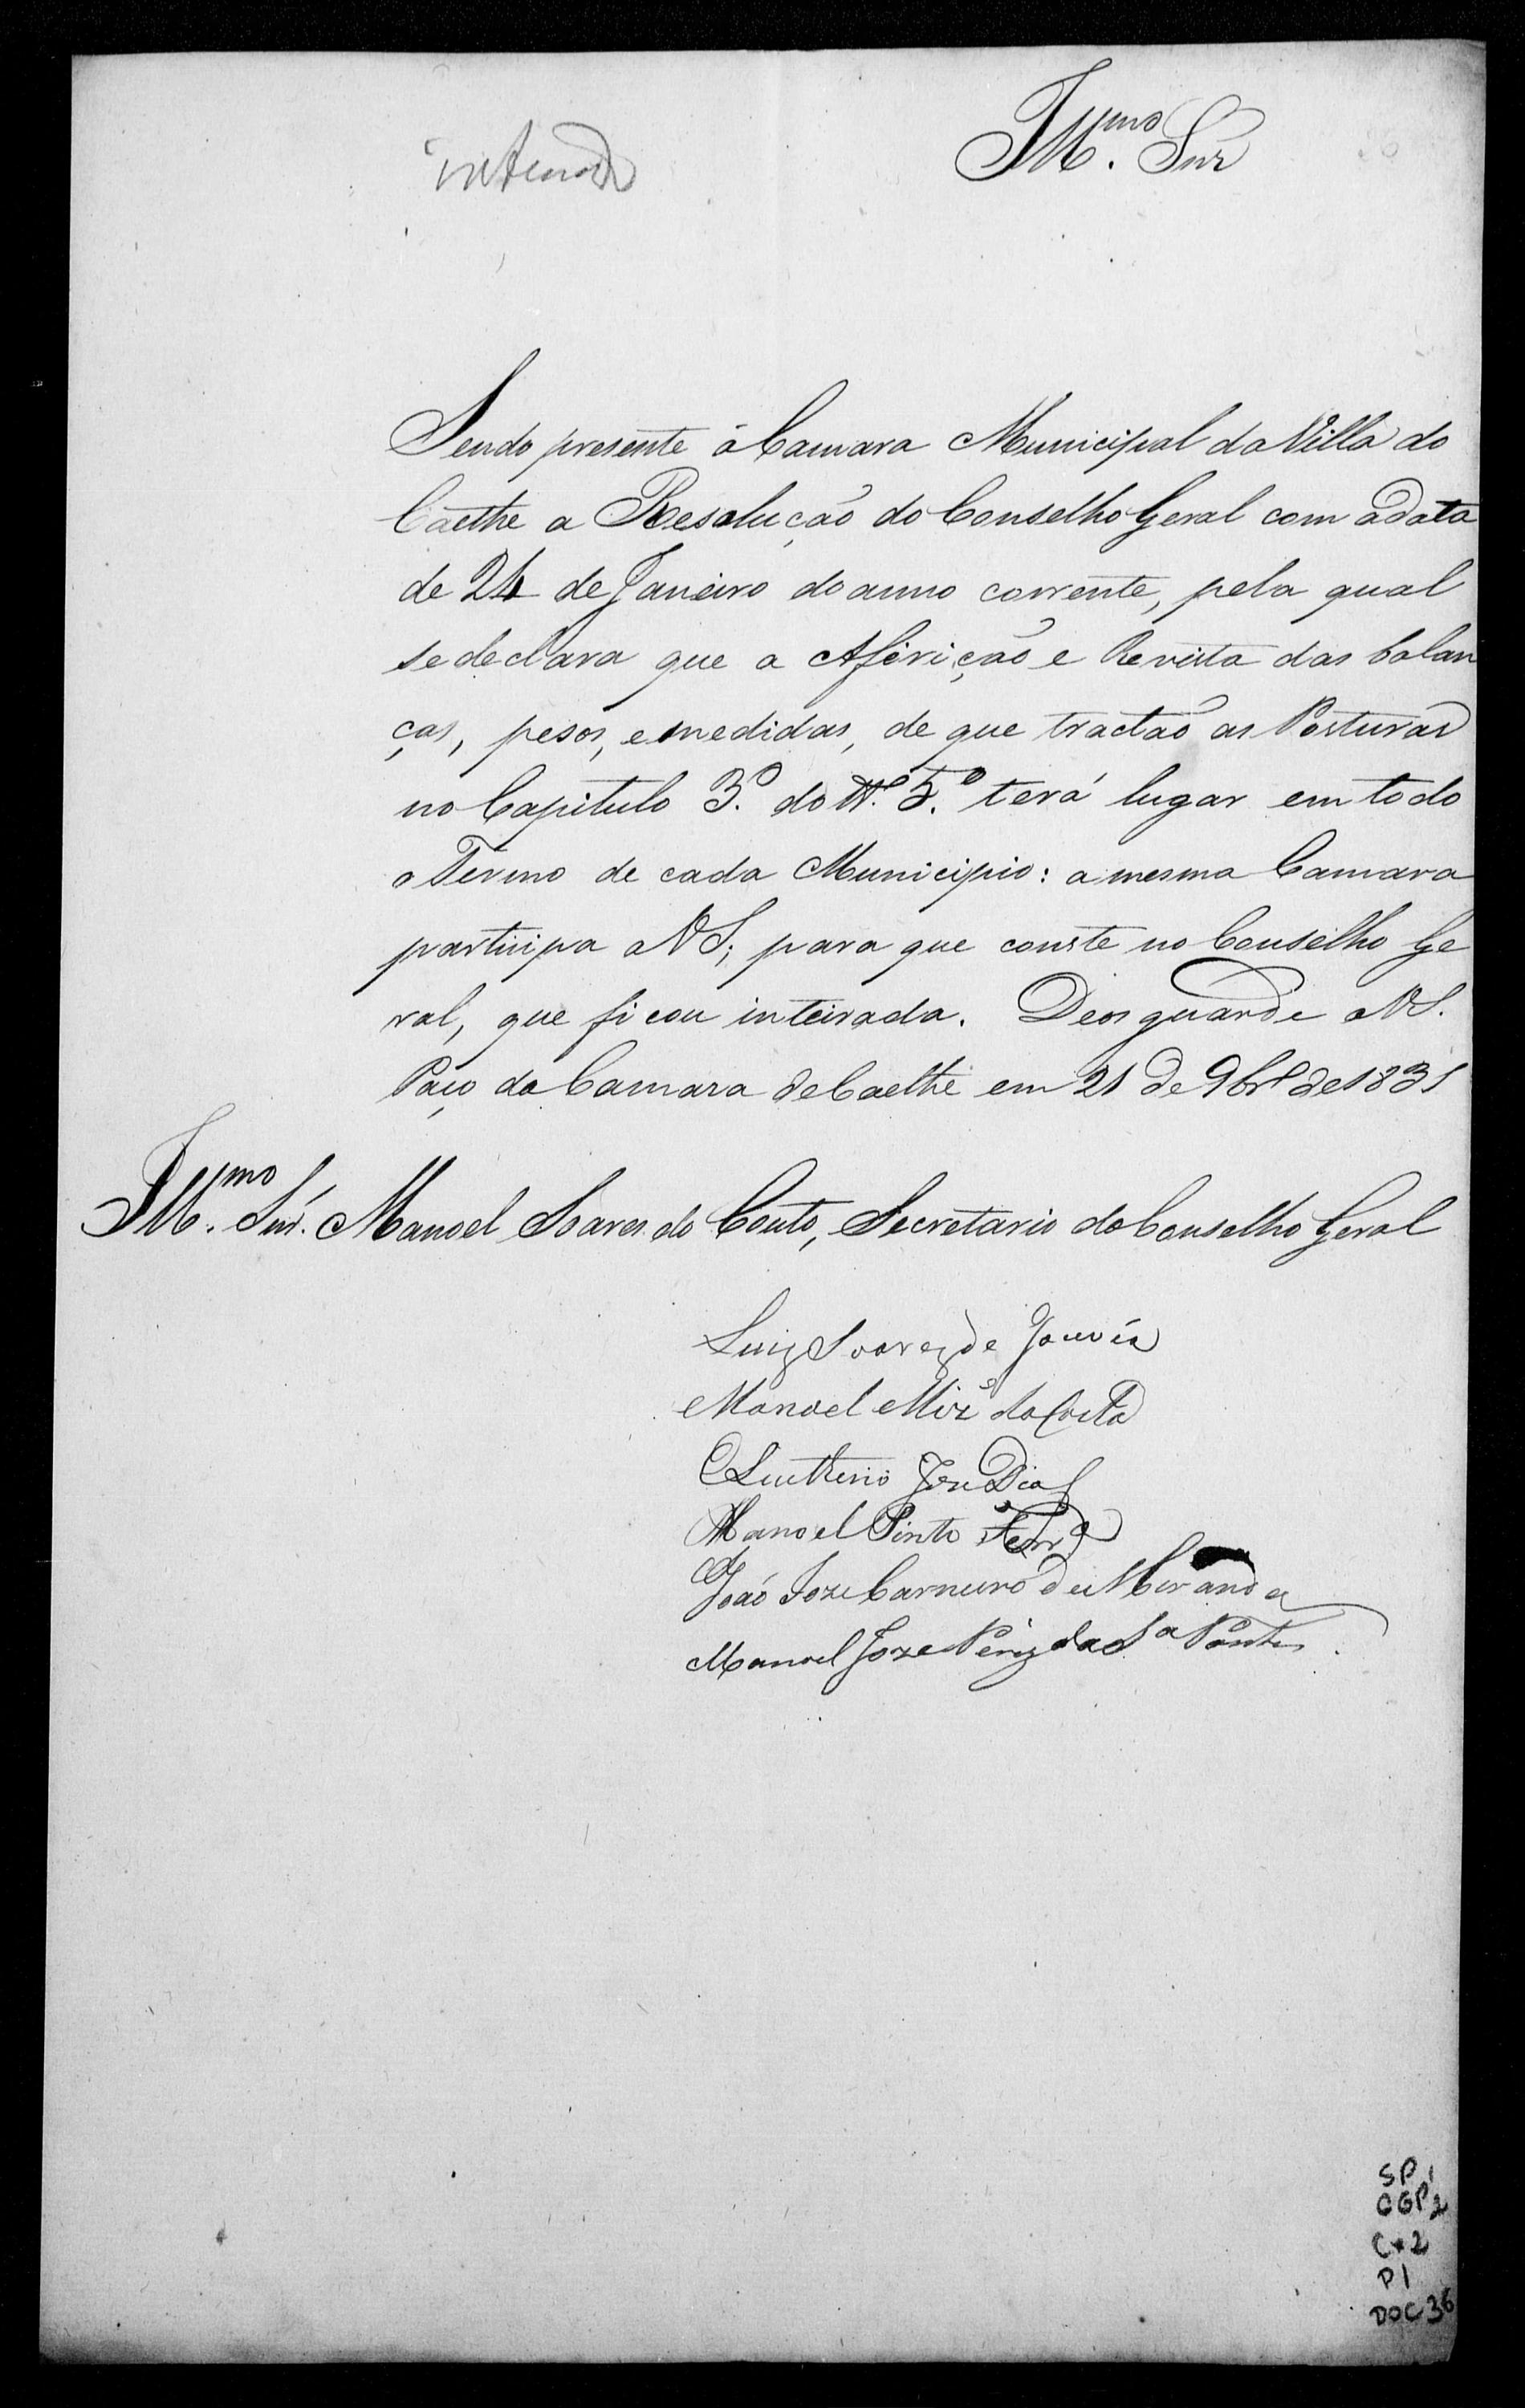 Illmo. Snr
Sendo presente á Camara Municipal da Villa do
Caethe a Resolução do Conselho Geral com a data
de 24 de Janeiro do anno corrente, pela qual
se declara que a Aferição e Revista das balan
ças, pesos, e medidas, de que tractão as Posturas
no Capitulo 3.º do N.º 5.º terá lugar em todo
o Termo de cada Municipio: a mesma Camara
participa a VS; para que conste no Conselho Ge
ral, que ficou inteirada. Deos guarde a VS.
Paço da Camara de Caethe em 21 de 9br.º de 1831
Illmo. Snr. Manoel Soares do Couto, Secretario do Conselho Geral
Luiz Soarez de Gouvêa
Manoel Miz da Costa
Eleutherio Joze Dias
Manoel Pinto Ferrª
João Joze Carneiro de Miranda
Manoel Joze Pires da Sª Pontes.
SP 1
CGP 2
Cx 2
P1
DOC 36